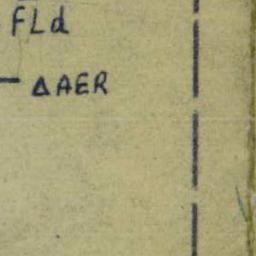 FLd
ΔAER